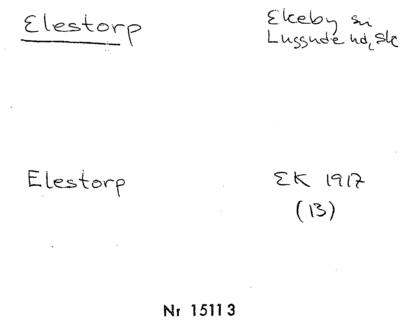 Elestorp
Ekeby sn
Luggude hd, Sk
Elestorp
EK 1917
(13)
Nr 15113